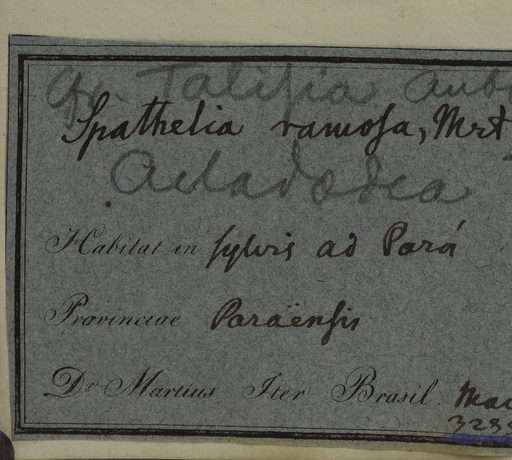 Gr. Talisia Aub
Spathelia ramosa, Mrt
Actadædea
Habitat in sylvis ad Pará
Provinciae Paraënsis
Dr. Martius Iter Brasil.